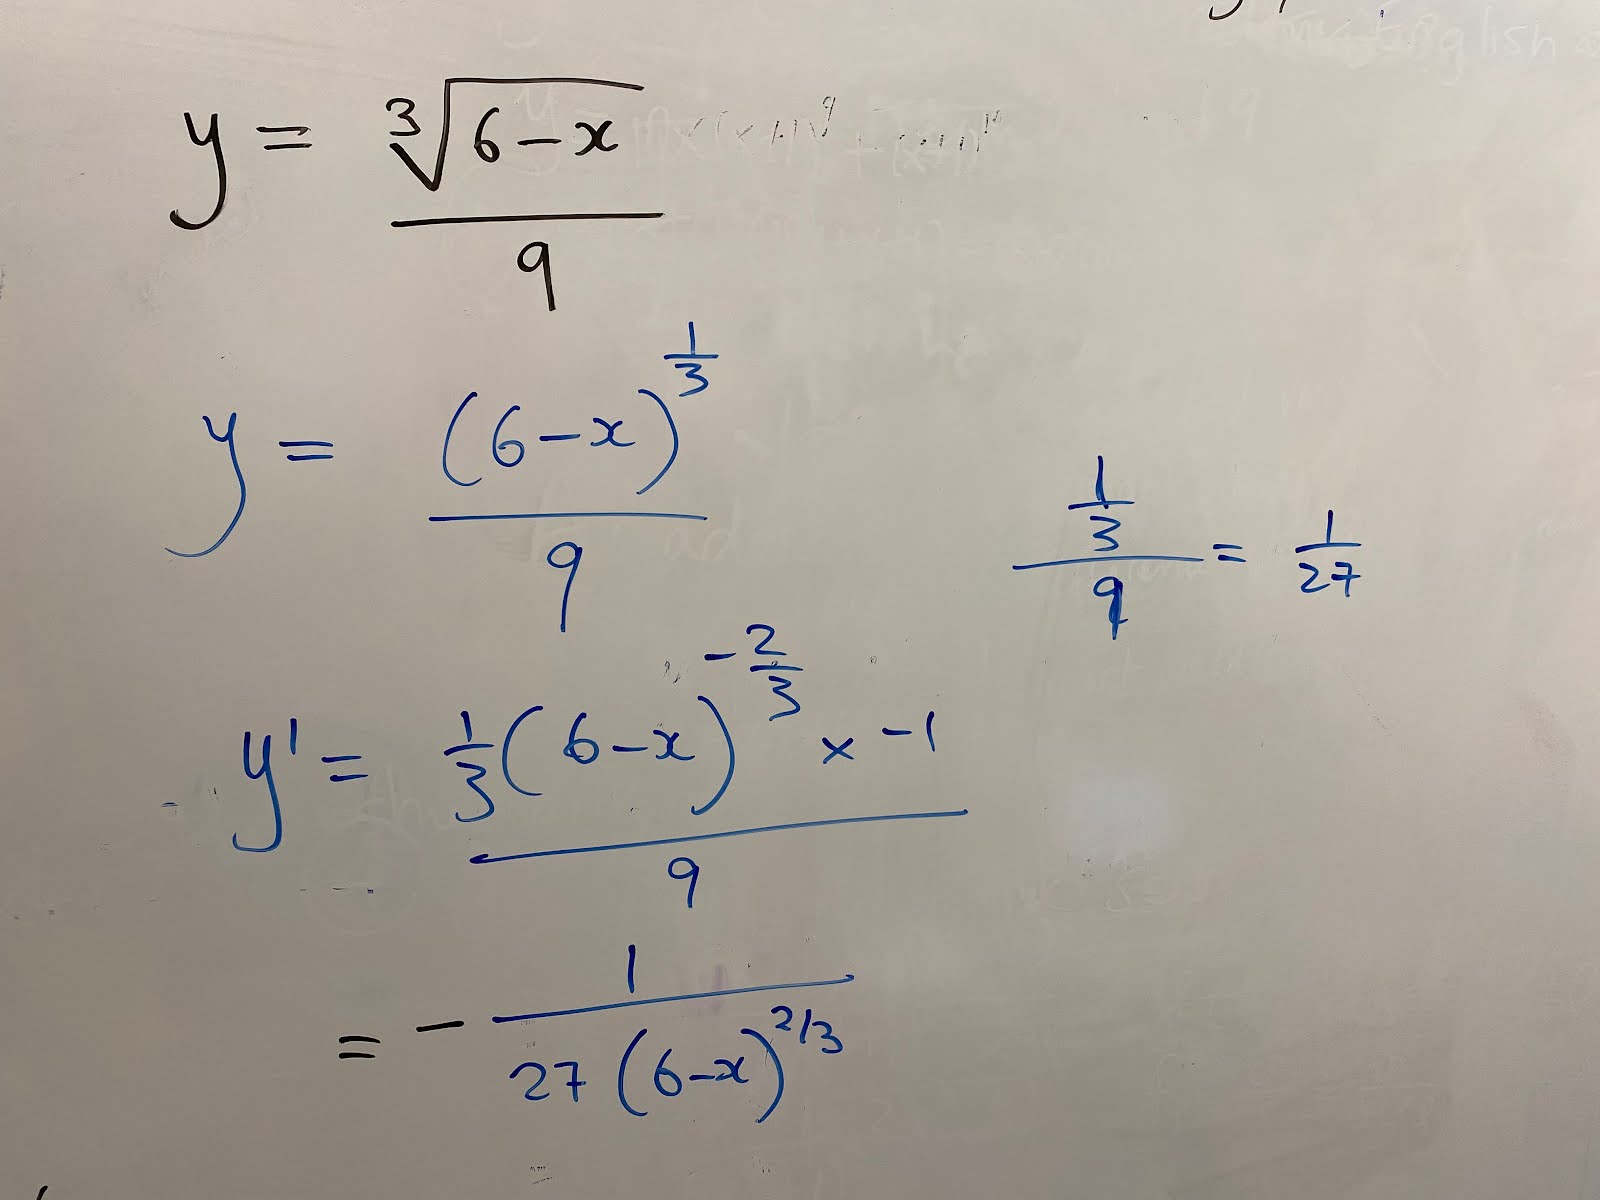 y = ∛(6-x) / 9
y = (6-x)^(1/3) / 9
(1/3) / 9 = 1/27
y' = 1/3 (6-x)^(-2/3) × -1 / 9
= - 1 / 27(6-x)^(2/3)